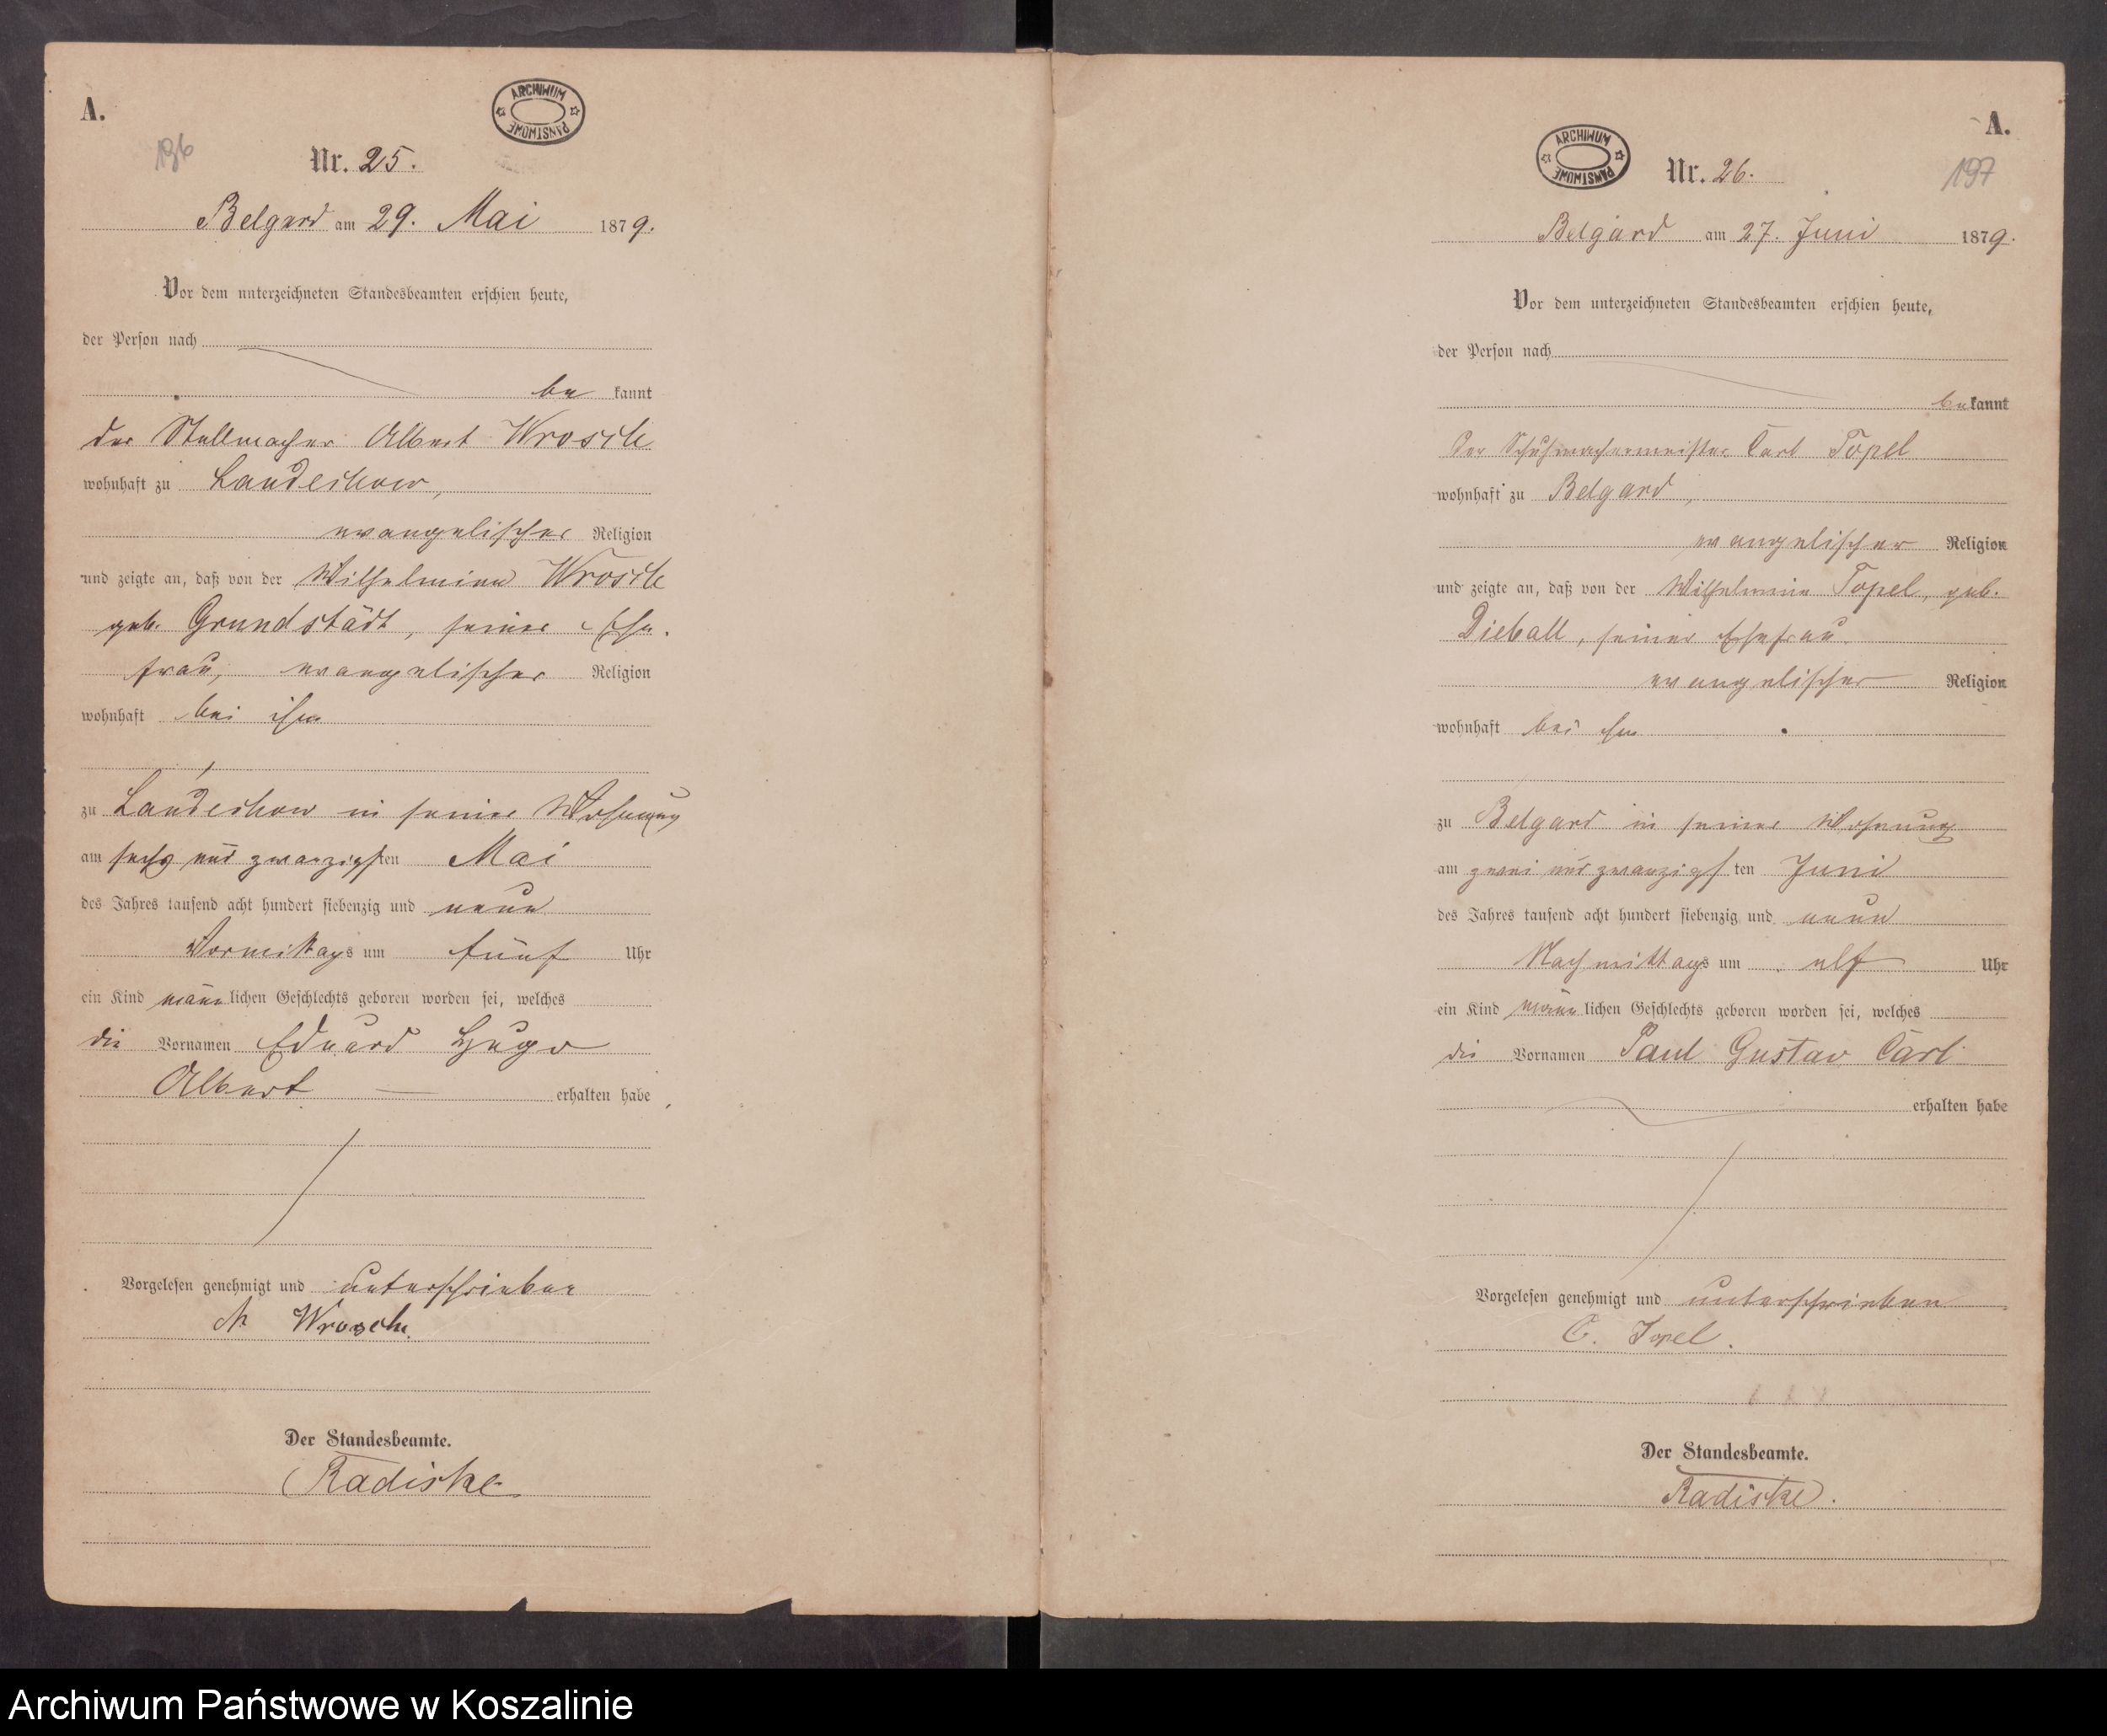 A.
ARCHIWUM PAŃSTWOWE
196
Nr. 25.
Belgard am 29. Mai 1879.
Vor dem unterzeichneten Standesbeamten erschien heute,
der Person nach
be kannt
der Stellmacher Albert Wrosch
wohnhaft zu Landechow,
evangelischer Religion
und zeigte an, daß von der Wilhelmine Wrosch
geb. Grundstädt, seiner Ehe-
frau, evangelischer Religion
wohnhaft bei ihm
zu Landechow in seiner Wohnung
am sechs und zwanzigsten Mai
des Jahres tausend acht hundert siebenzig und neun
Vormittags um fünf Uhr
ein Kind männlichen Geschlechts geboren worden sei, welches
die Vornamen Eduard Hugo
Albert erhalten habe
Vorgelesen genehmigt und unterschrieben
A Wrosch.
Der Standesbeamte.
Radiske
A.
ARCHIWUM PAŃSTWOWE
Nr. 26.
197
Belgard am 27. Juni 1879.
Vor dem unterzeichneten Standesbeamten erschien heute,
der Person nach
bekannt
der Schuhmachermeister Carl Topel
wohnhaft zu Belgard,
evangelischer Religion
und zeigte an, daß von der Wilhelmine Topel, geb.
Dieball, seiner Ehefrau.
evangelischer Religion
wohnhaft bei ihm
zu Belgard in seiner Wohnung
am zwei und zwanzigsten Juni
des Jahres tausend acht hundert siebenzig und neun
Nachmittags um elf Uhr
ein Kind männlichen Geschlechts geboren worden sei, welches
die Vornamen Paul Gustav Carl
erhalten habe
Vorgelesen genehmigt und unterschrieben
C. Topel.
Der Standesbeamte.
Radiske.
Archiwum Państwowe w Koszalinie